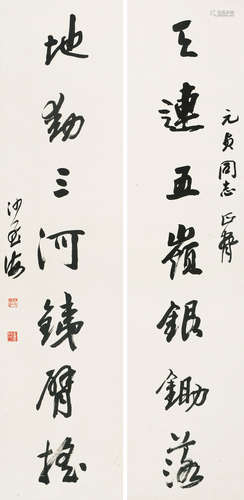 元貞同志正
天連五嶺銀鋤落
地動三河銕臂搖
沙孟海